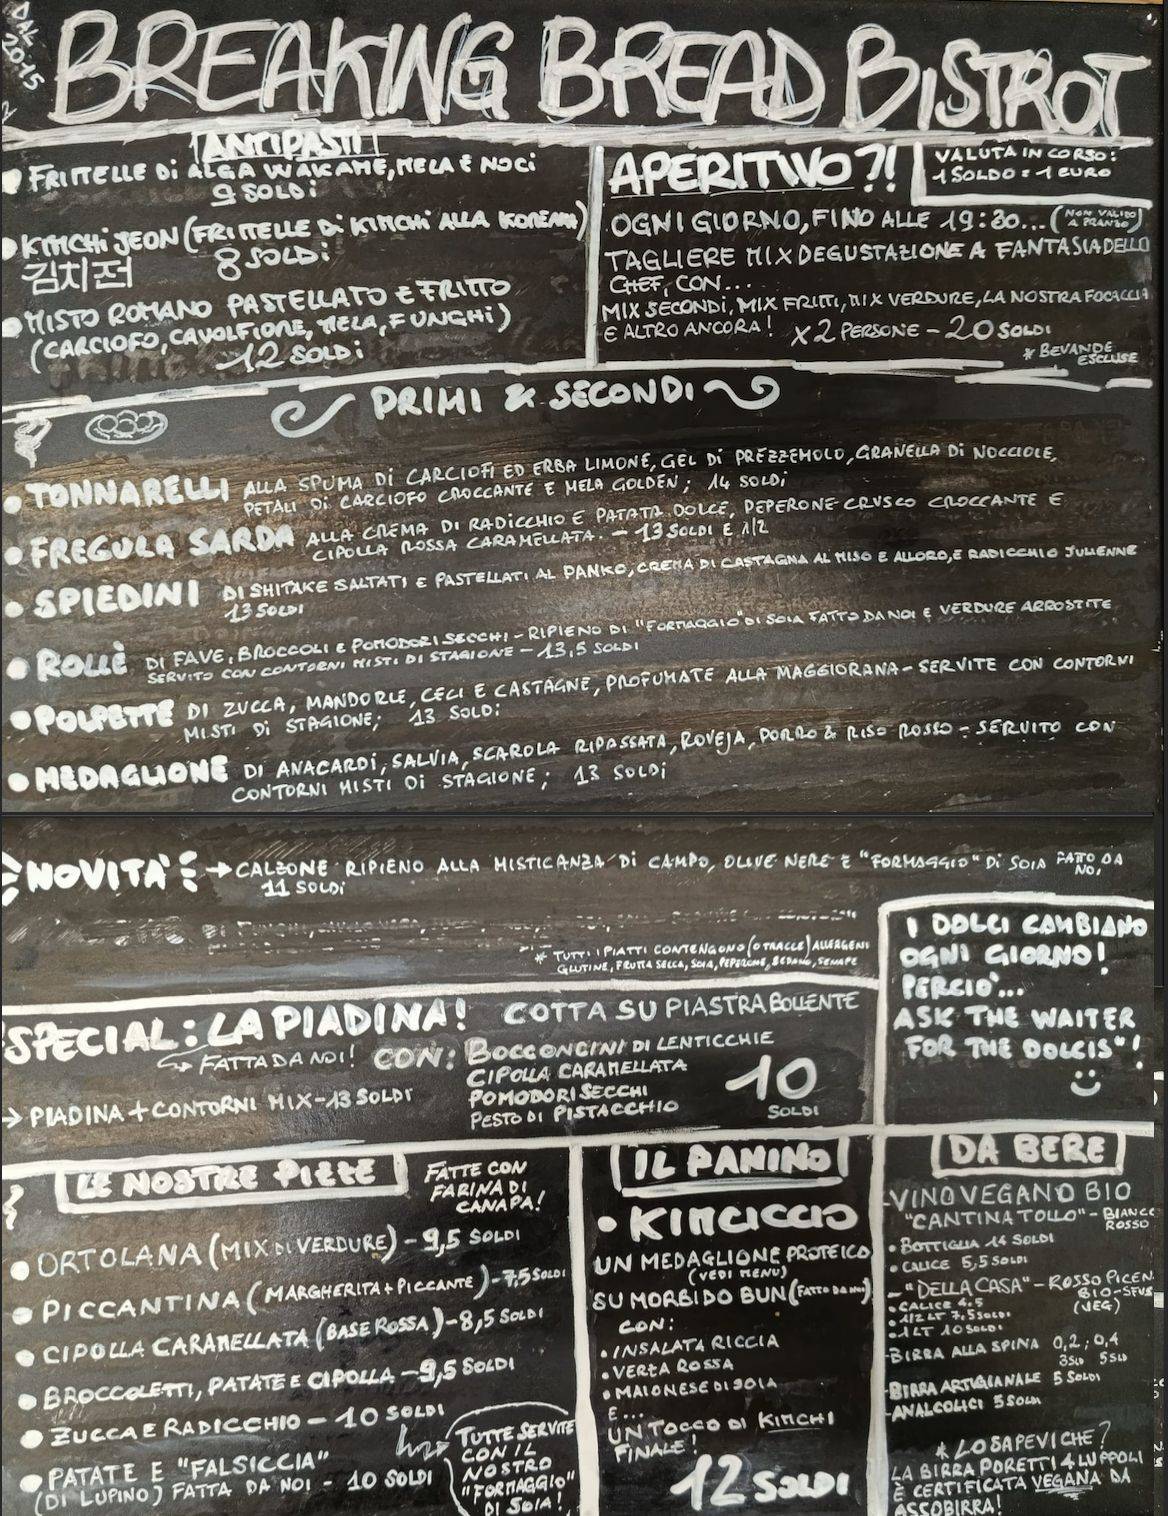 DAL
2015
BREAKING BREAD BISTROT
ANTIPASTI
FRITTELLE DI ALGA WAKAME, MELA E NOCI
9 SOLDI
KIMCHI JEON (FRITTELLE DI KIMCHI ALLA KOREAN)
김치전 8 SOLDI
MISTO ROMANO PASTELLATO E FRITTO
(CARCIOFO, CAVOLFIORE, MELA, FUNGHI)
12 SOLDI
APERITIVO?!
VALUTA IN CORSO:
1 SOLDO = 1 EURO
OGNI GIORNO, FINO ALLE 19:30... (NON VALIDO
A PRANZO)
TAGLIERE MIX DEGUSTAZIONE A FANTASIA DELLO
CHEF, CON...
MIX SECONDI, MIX FRITTI, MIX VERDURE, LA NOSTRA FOCACCIA
E ALTRO ANCORA! X2 PERSONE - 20 SOLDI
* BEVANDE
ESCLUSE
PRIMI & SECONDI
TONNARELLI ALLA SPUMA DI CARCIOFI ED ERBA LIMONE, GEL DI PREZZEMOLO, GRANELLA DI NOCCIOLE,
PETALI DI CARCIOFO CROCCANTE E MELA GOLDEN; 14 SOLDI
FREGULA SARDA ALLA CREMA DI RADICCHIO E PATATA DOLCE, PEPERONE CRUSCO CROCCANTE E
CIPOLLA ROSSA CARAMELLATA. - 13 SOLDI E 1/2
SPIEDINI DI SHITAKE SALTATI E PASTELLATI AL PANKO, CREMA DI CASTAGNA AL MISO E ALLORO, E RADICCHIO JULIENNE
13 SOLDI
ROLLÈ DI FAVE, BROCCOLI E POMODORI SECCHI - RIPIENO DI "FORMAGGIO" DI SOIA FATTO DA NOI E VERDURE ARROSTITE
SERVITO CON CONTORNI MISTI DI STAGIONE - 13,5 SOLDI
POLPETTE DI ZUCCA, MANDORLE, CECI E CASTAGNE, PROFUMATE ALLA MAGGIORANA - SERVITE CON CONTORNI
MISTI DI STAGIONE; 13 SOLDI
MEDAGLIONE DI ANACARDI, SALVIA, SCAROLA RIPASSATA, ROVEJA, PORRO & RISO ROSSO - SERVITO CON
CONTORNI MISTI DI STAGIONE; 13 SOLDI
NOVITÀ → CALZONE RIPIENO ALLA MISTICANZA DI CAMPO, OLIVE NERE E "FORMAGGIO" DI SOIA FATTO DA
NOI
11 SOLDI
* TUTTI I PIATTI CONTENGONO (O TRACCE) ALLERGENI
GLUTINE, FRUTTA SECCA, SOIA, PEPERONE, SEDANO, SENAPE
I DOLCI CAMBIANO
OGNI GIORNO!
PERCIÒ...
ASK THE WAITER
FOR THE DOLCIS"!
SPECIAL: LA PIADINA! COTTA SU PIASTRA BOLLENTE
FATTA DA NOI! CON: BOCCONCINI DI LENTICCHIE
CIPOLLA CARAMELLATA
POMODORI SECCHI
PESTO DI PISTACCHIO
10
SOLDI
→ PIADINA + CONTORNI MIX - 13 SOLDI
LE NOSTRE PIZZE
FATTE CON
FARINA DI
CANAPA!
ORTOLANA (MIX DI VERDURE) - 9,5 SOLDI
PICCANTINA (MARGHERITA + PICCANTE) - 7,5 SOLDI
CIPOLLA CARAMELLATA (BASE ROSSA) - 8,5 SOLDI
BROCCOLETTI, PATATE E CIPOLLA - 9,5 SOLDI
ZUCCA E RADICCHIO - 10 SOLDI
PATATE E "FALSICCIA"
(DI LUPINO) FATTA DA NOI - 10 SOLDI
TUTTE SERVITE
CON IL
NOSTRO
"FORMAGGIO"
DI SOIA!
IL PANINO
KIMCICCIO
UN MEDAGLIONE PROTEICO
(VEDI MENU)
SU MORBIDO BUN (FATTO DA NOI)
CON:
INSALATA RICCIA
VERZA ROSSA
MAIONESE DI SOIA
E...
UN TOCCO DI KIMCHI
FINALE!
12 SOLDI
DA BERE
- VINO VEGANO BIO
"CANTINA TOLLO" - BIANCO
ROSSO
BOTTIGLIA 14 SOLDI
CALICE 5,5 SOLDI
- "DELLA CASA" - ROSSO PICEN
BIO - SFUS
(VEG)
CALICE 4.5
1/2 LT 7,5 SOLDI
1 LT 10 SOLDI
- BIRRA ALLA SPINA 0,2; 0,4
3 SLD 5 SLD
- BIRRA ARTIGIANALE 5 SOLDI
- ANALCOLICI 5 SOLDI
* LO SAPEVI CHE?
LA BIRRA PORETTI 4 LUPPOLI
È CERTIFICATA VEGANA DA
ASSOBIRRA!